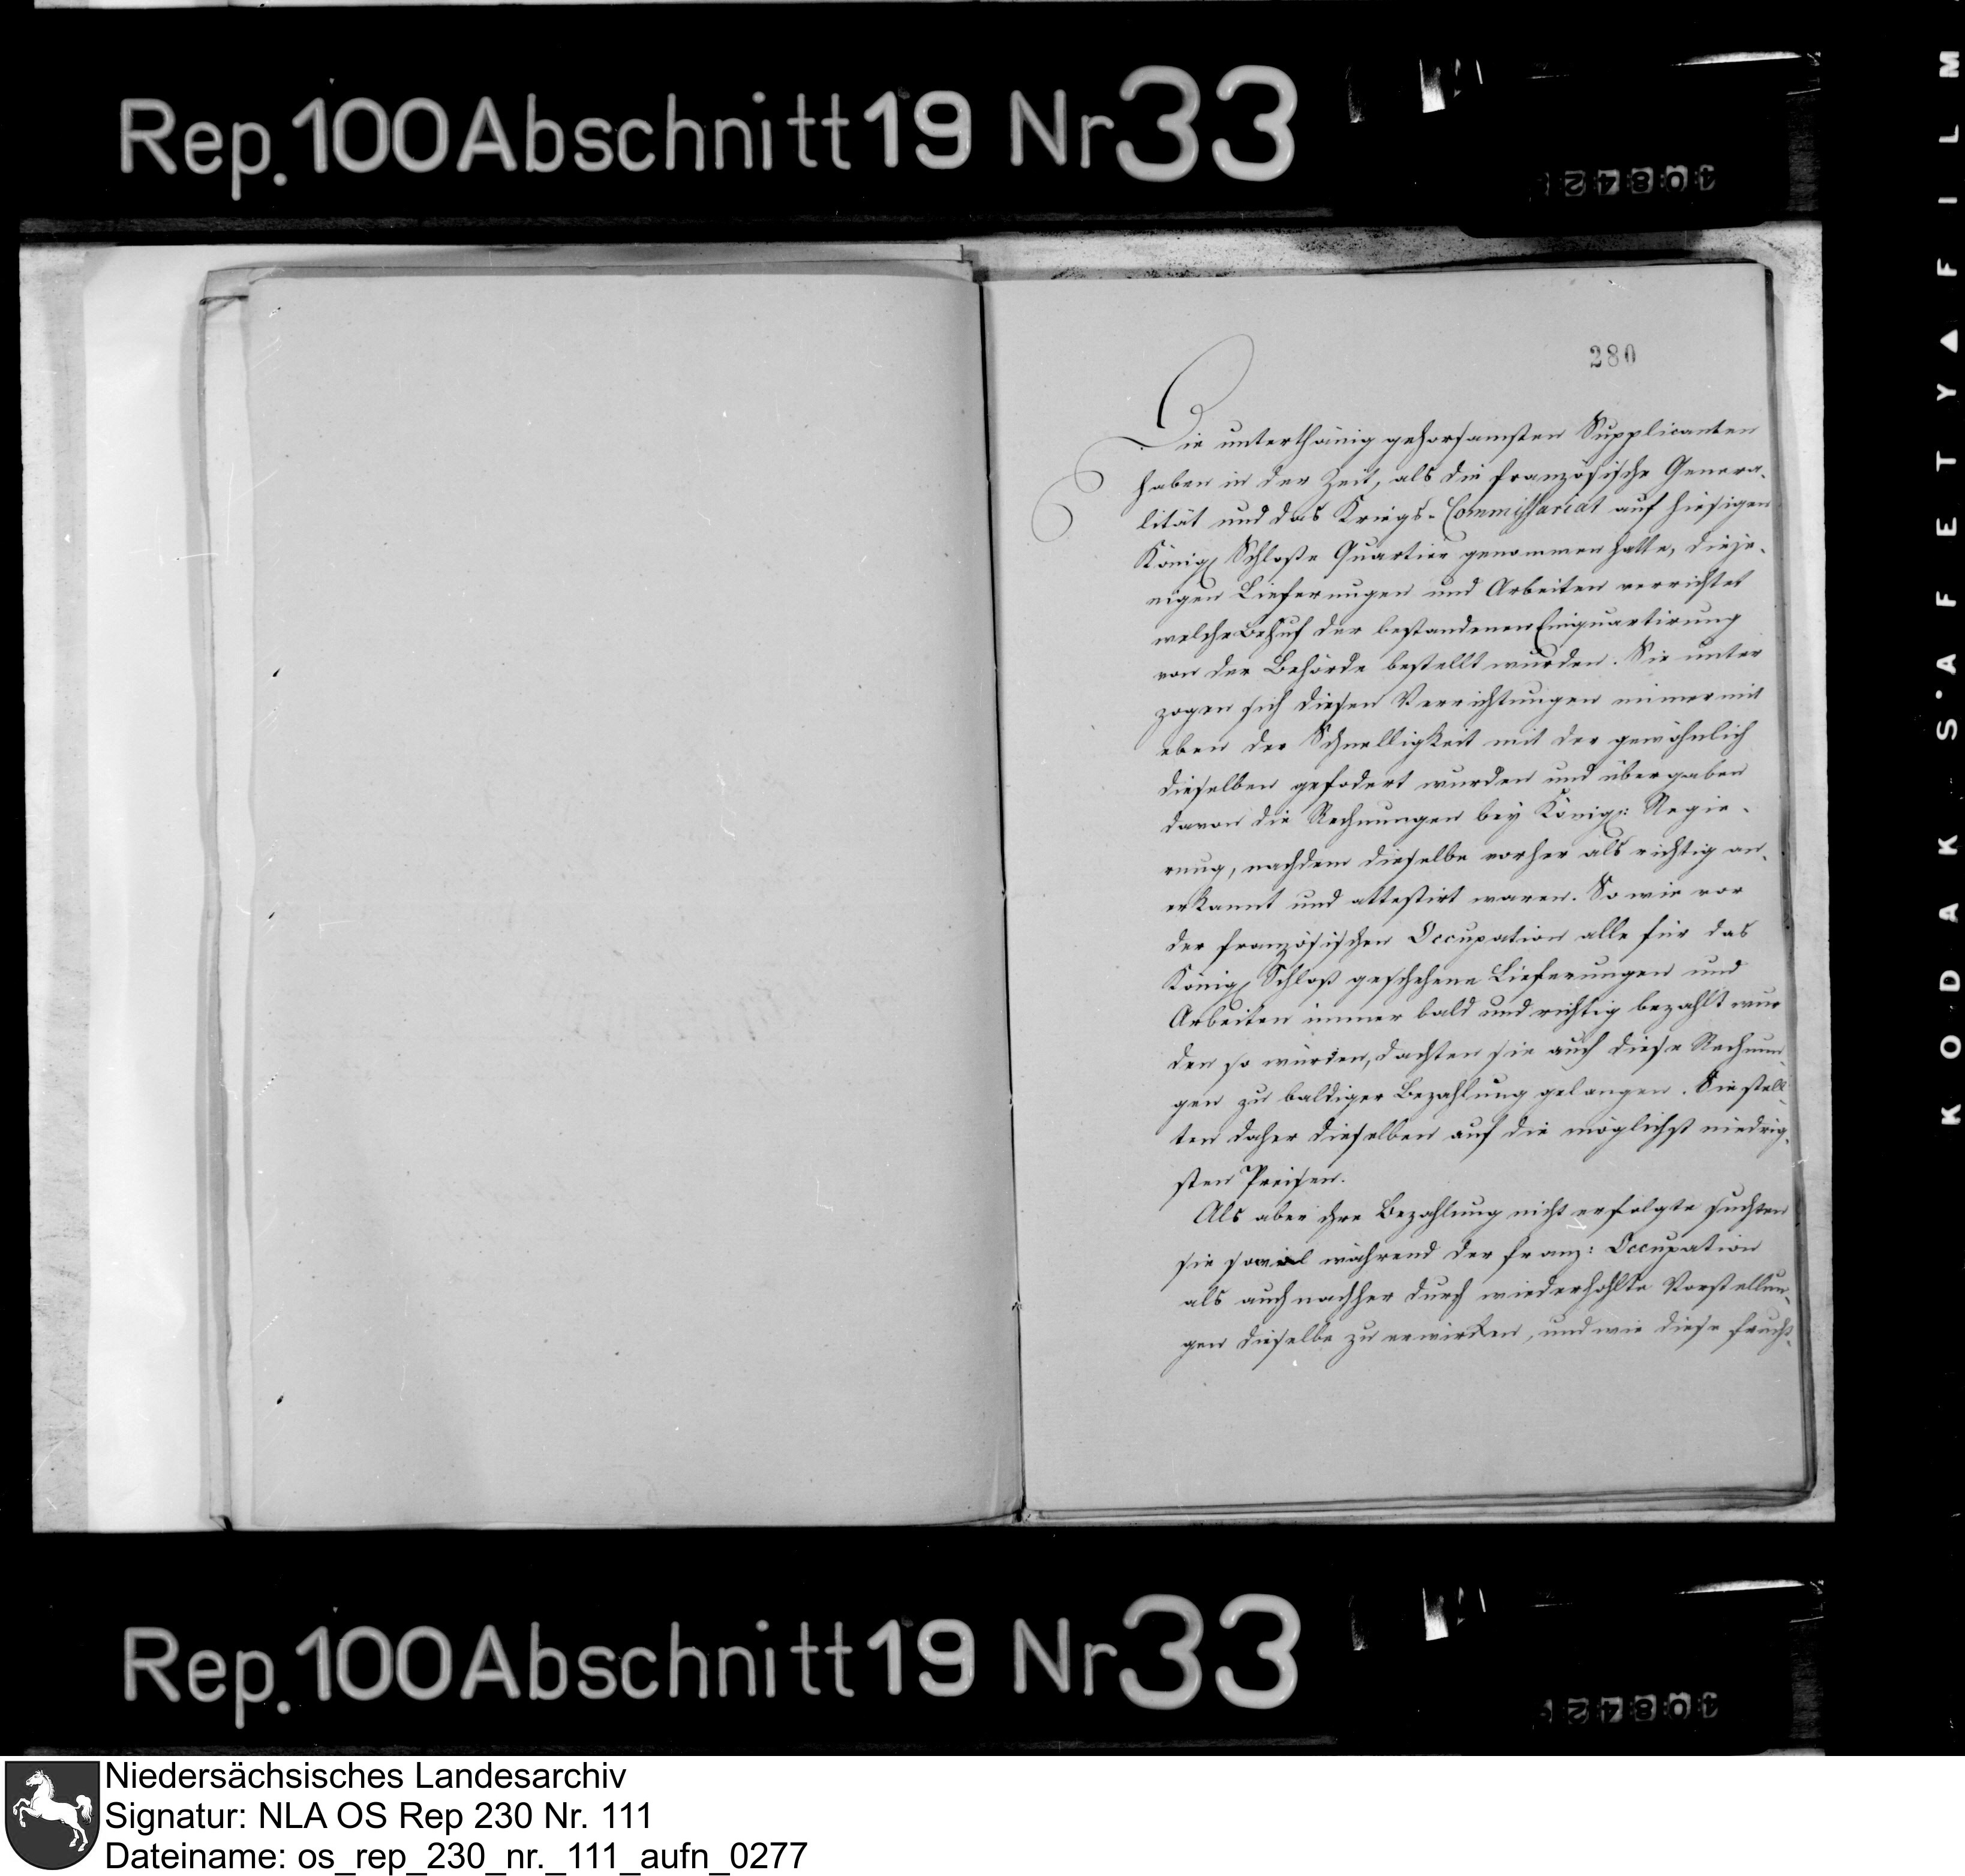 Rep.100 Abschnitt 19 Nr 33
40842
280
Die unterthänig gehorsamsten Supplicanten
haben in der Zeit, als die französische Genera-
lität und das Kriegs-Commissariat auf hiesigen
Königl Schloße Quartier genommen hatte, dieje-
nigen Lieferungen und Arbeiten verrichtet
welche Behuf der bestandenen Einquartirung
von der Behörde bestellt wurden. Sie unter
zogen sich diesen Verrichtungen immer mit
eben der Schnelligkeit mit der gewöhnlich
dieselben gefodert wurden und übergaben
davon die Rechnungen bey Königl: Regie-
rung, nachdem dieselbe vorher als richtig an-
erkannt und attestirt waren. So wie vor
der französischen Occupation alle für das
Königl Schloß geschehene Lieferungen und
Arbeiten immer bald und richtig bezahlt wur
den so würden, dachten sie auch diese Rechnun-
gen zu baldiger Bezahlung gelangen. Sie stell-
ten daher dieselben auf die möglichst niedrig-
sten Preisen.
Als aber ihre Bezahlung nicht erfolgte suchten
sie sowol während der franz: Occupation
als auch nachher durch wiederhohlte Vorstellun-
gen dieselbe zu erwirken, und wie diese frucht-
Rep.100 Abschnitt 19 Nr 33
40842
KODAK SAFETY FILM
Niedersächsisches Landesarchiv
Signatur: NLA OS Rep 230 Nr. 111
Dateiname: os_rep_230_nr._111_aufn_0277